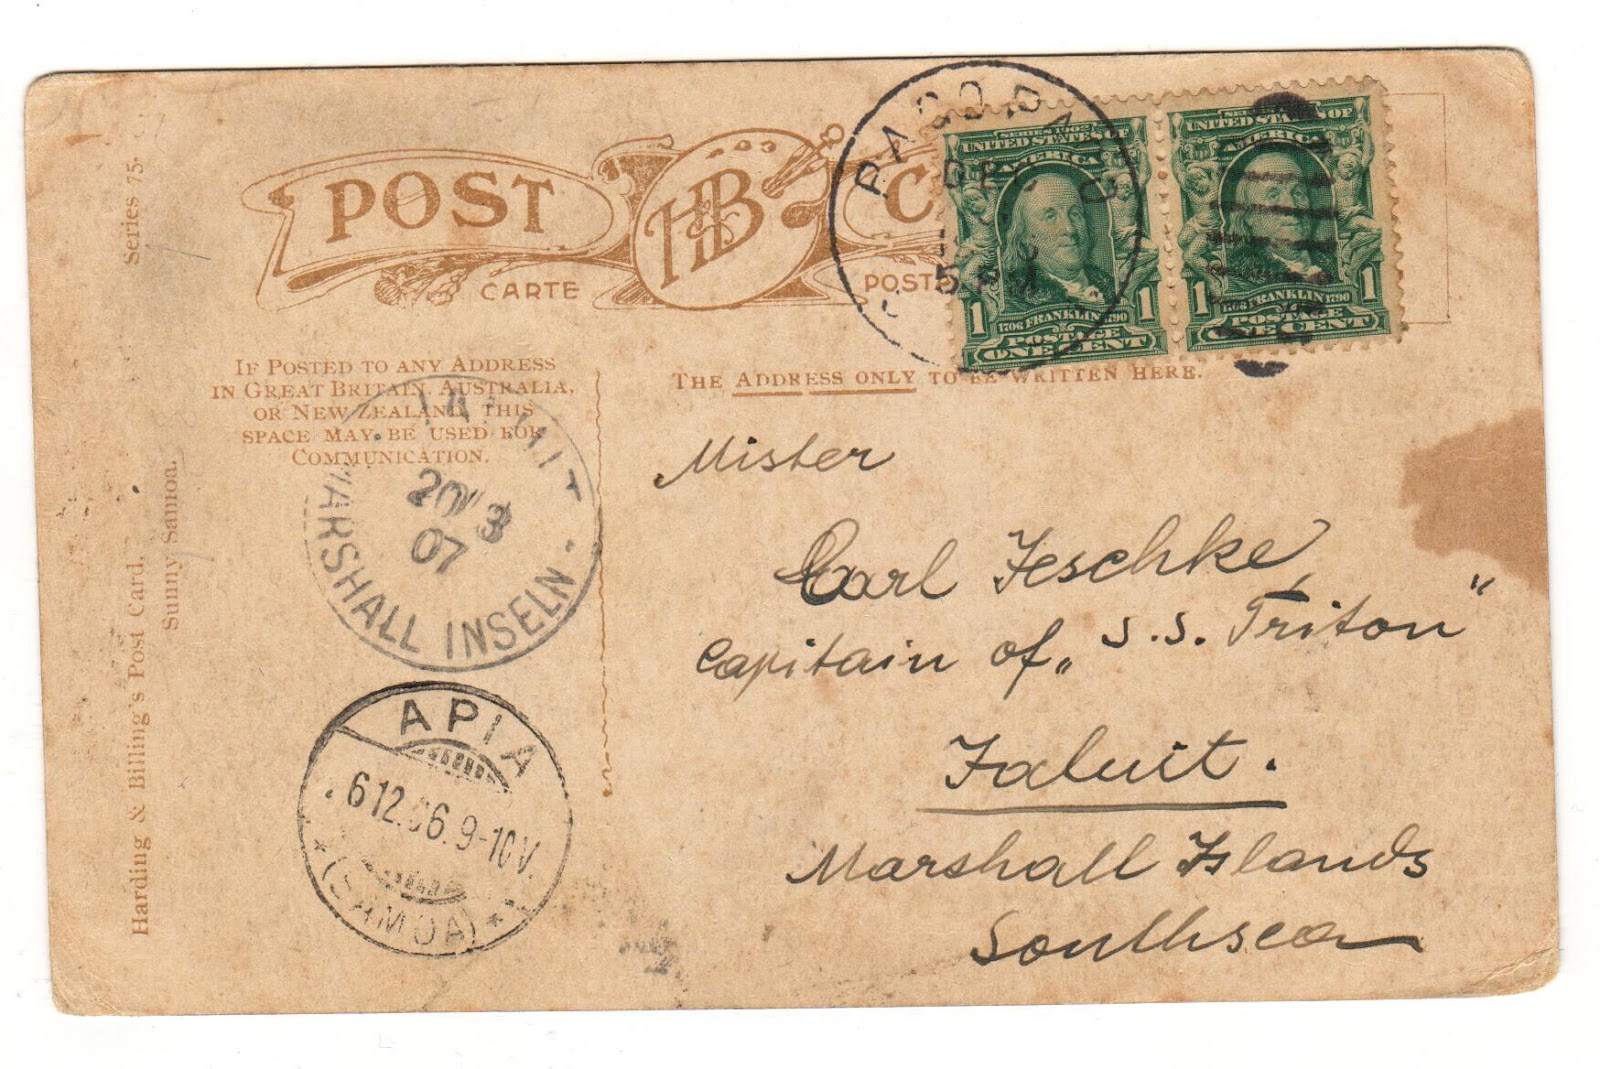 POST
HB
CARTE
POST
PAGO PAGO
DEC
5
SERIES 1902
UNITED STATES OF
AMERICA
1706 FRANKLIN 1790
1 POSTAGE 1
ONE CENT
UNITED STATES OF
AMERICA
1706 FRANKLIN 1790
1 POSTAGE 1
ONE CENT
IF POSTED TO ANY ADDRESS
IN GREAT BRITAIN, AUSTRALIA,
OR NEW ZEALAND, THIS
SPACE MAY BE USED FOR
COMMUNICATION.
THE ADDRESS ONLY TO BE WRITTEN HERE.
Mister
Carl Jeschke
Capitain of „S.S. Triton"
Jaluit.
Marshall Islands
Southsea
20/3
07
MARSHALL INSELN.
APIA
6.12.06.9-10V.
* (SAMOA) *
Series 75.
Harding & Billing's Post Card.
Sunny Samoa.